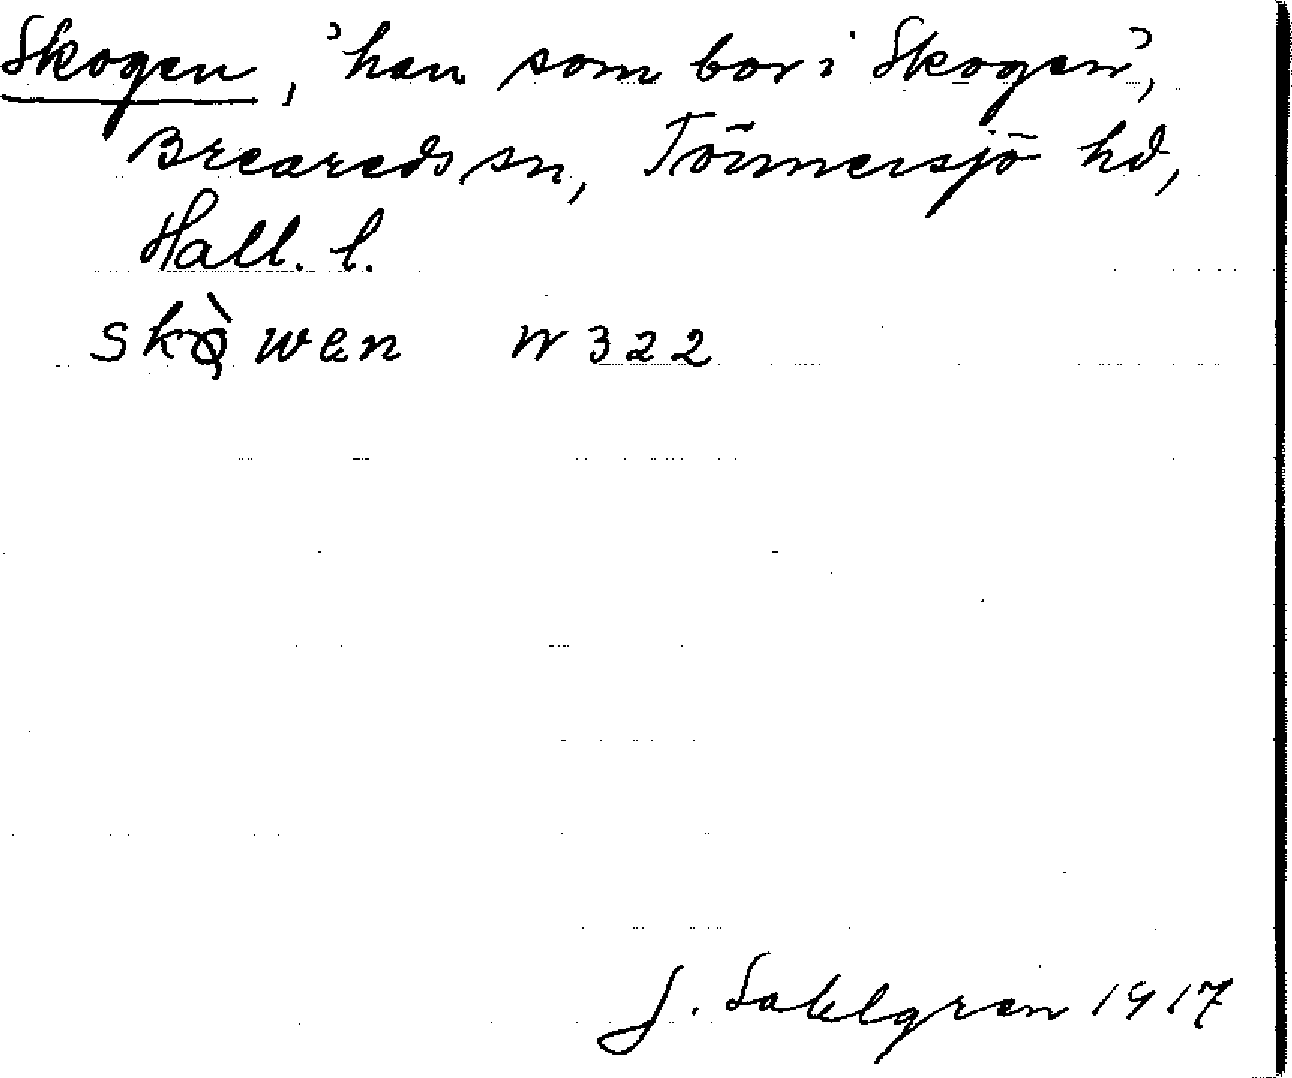 Skogen, 'han som bor i Skogen',
Breareds sn, Tönnersjö hd,
Hall. l.
skǫ̀wen N 322
J. Sahlgren 1917